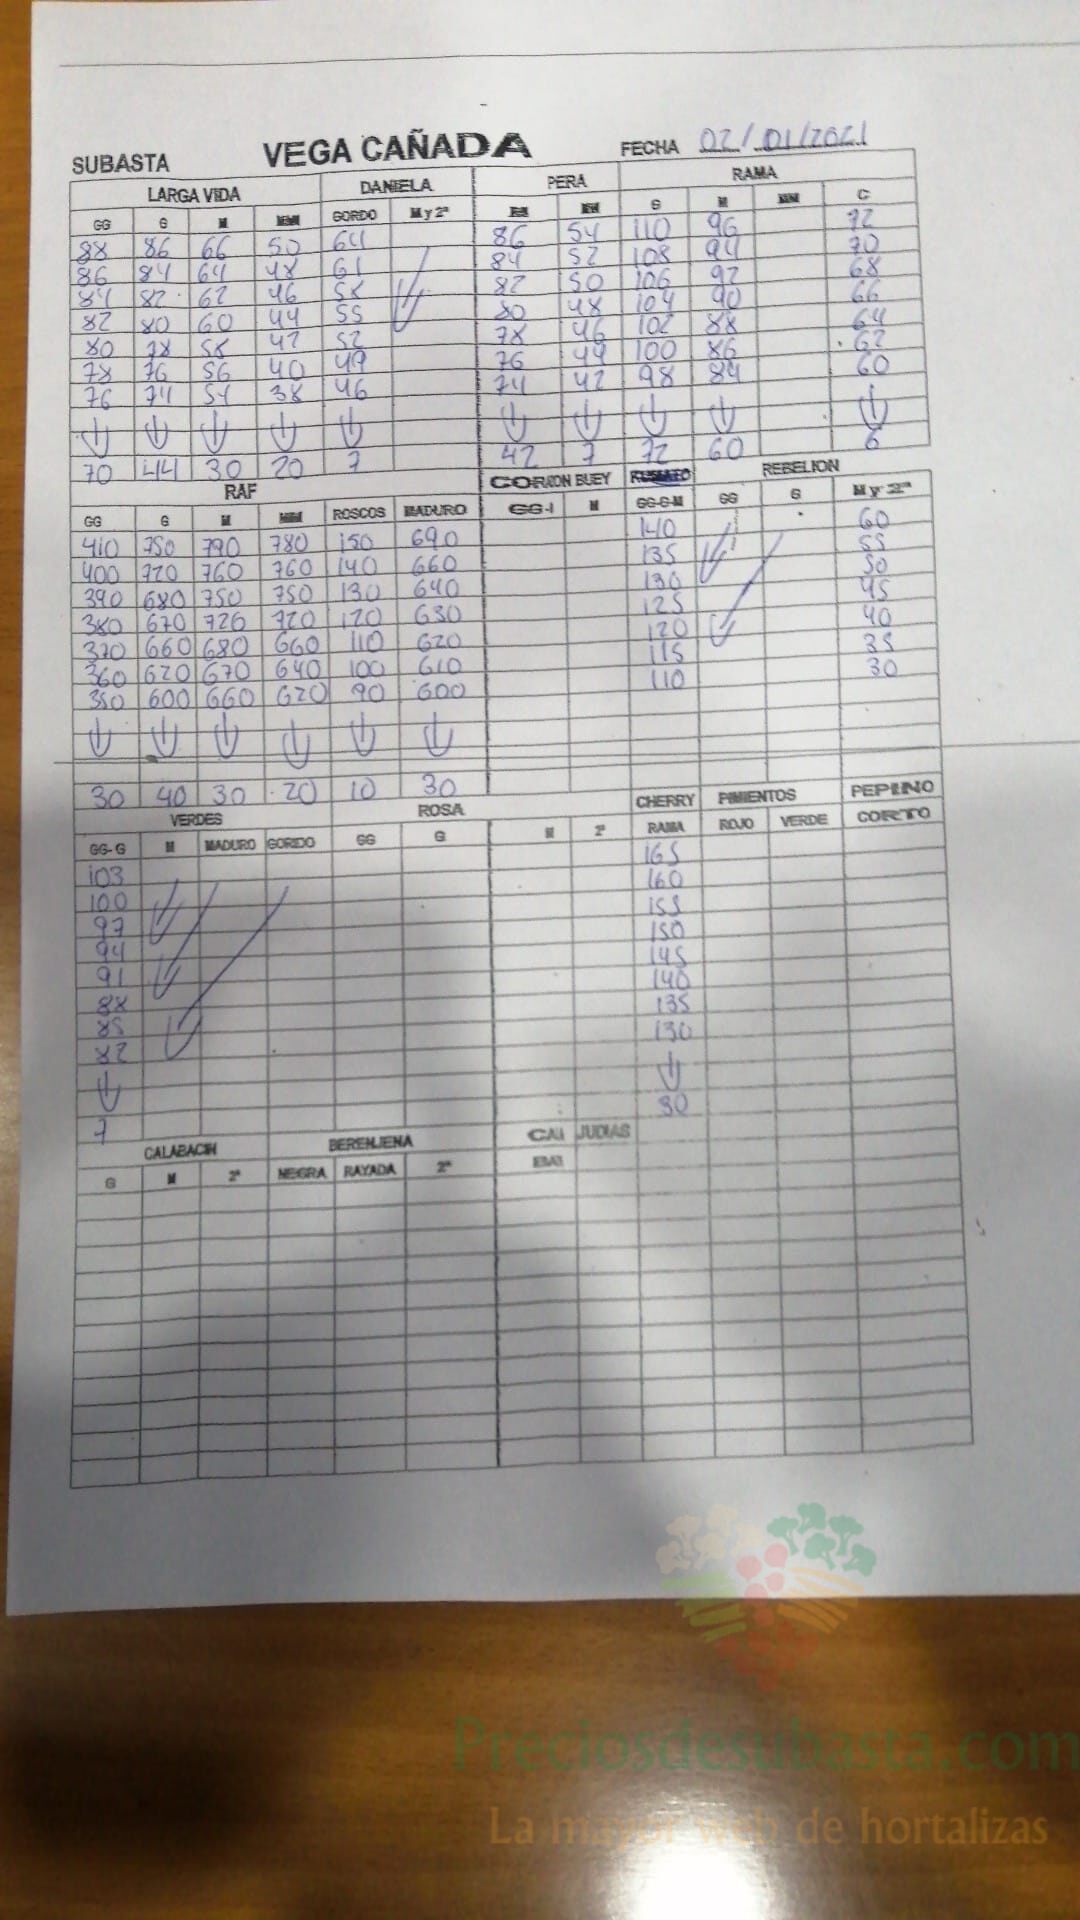 SUBASTA VEGA CAÑADA FECHA 02/01/2021
LARGA VIDA DANIELA PERA RAMA
GG G M MM GORDO M y 2ª G M MM C
88 86 66 50 64 86 54 110 96 72
86 84 64 48 61 84 52 108 94 70
84 82 62 46 58 82 50 106 92 68
82 80 60 44 55 80 48 104 90 66
80 78 58 42 52 78 46 102 88 64
78 76 56 40 49 76 44 100 86 62
76 74 54 38 46 74 42 98 84 60
70 44 30 20 7 42 7 72 60 6
RAF CORAZON BUEY REBELION
GG G M MM ROSCOS MADURO GG-G M GG-G-M GG G M y 2ª
410 750 790 780 150 690 140 60
400 720 760 760 140 660 135 55
390 680 750 750 130 640 130 50
380 670 726 720 120 630 125 45
370 660 680 660 110 620 120 40
360 620 670 640 100 610 115 35
350 600 660 620 90 600 110 30
30 40 30 20 10 30
VERDES ROSA CHERRY PIMIENTOS PEPINO
GG-G M MADURO GORDO GG G M 2ª RAMA ROJO VERDE CORTO
103 165
100 160
97 155
94 150
91 145
88 140
85 135
82 130
7 30
CALABACIN BERENJENA JUDIAS
G M 2ª NEGRA RAYADA 2ª
Preciosdesubasta.com
La mayor web de hortalizas